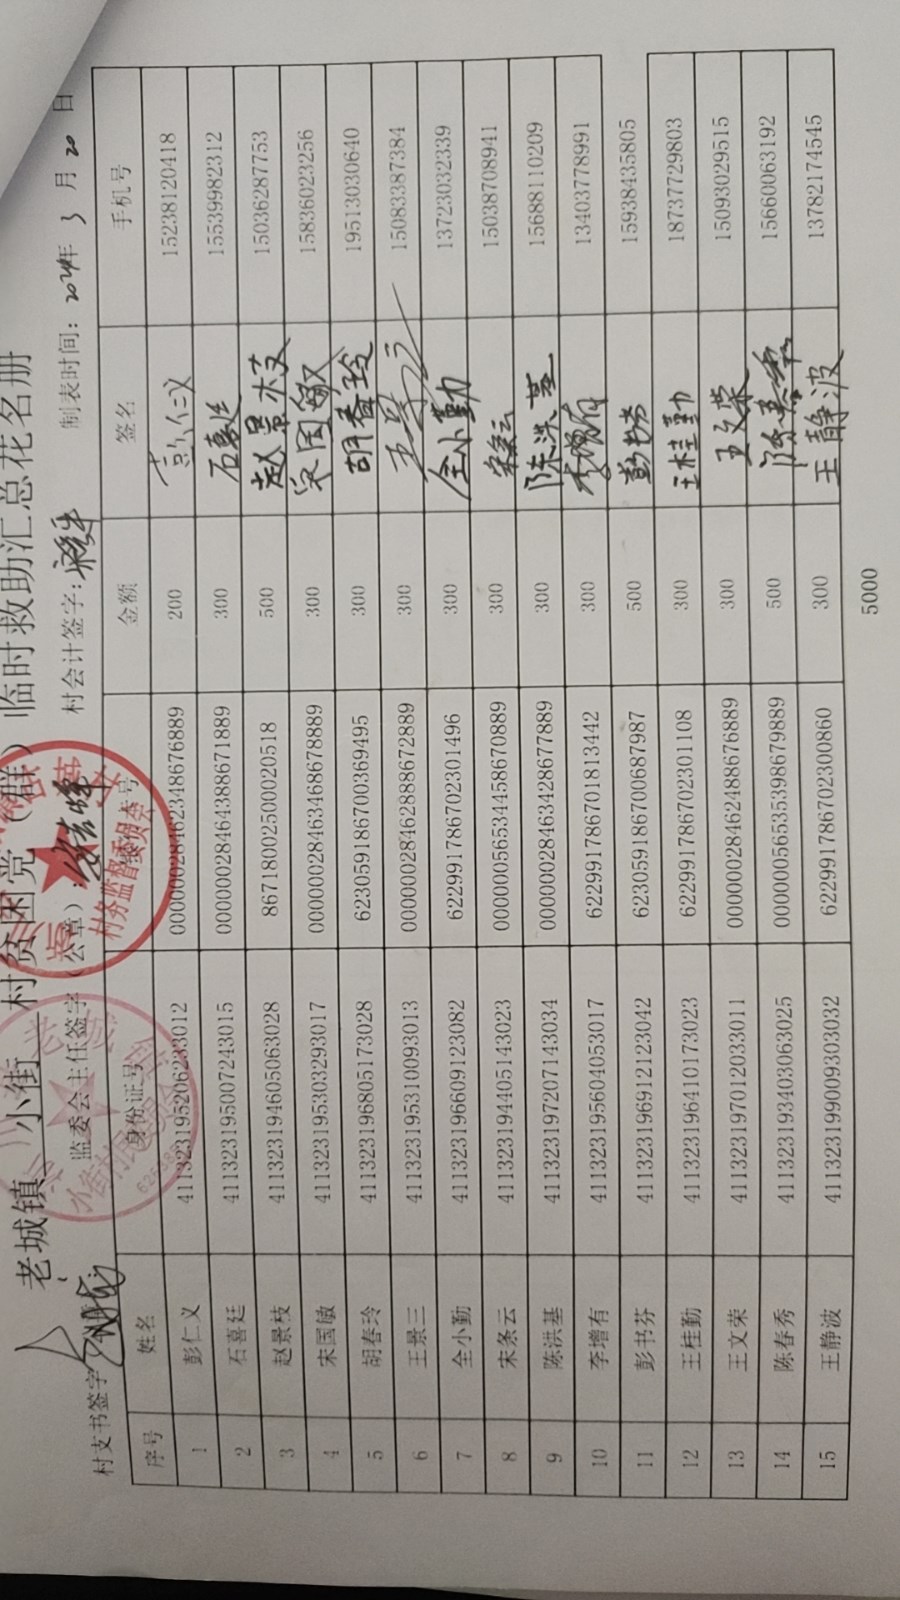 老城镇 小街 村贫困党(群)临时救助汇总花名册
村支书签字: 监委会主任签字(公章): 村会计签字: 制表时间: 2024年 3 月 20 日
序号 姓名 身份证号 账号 金额 签名 手机号
1 彭仁义 411323195206233012 00000028462348676889 200 彭仁义 15238120418
2 石喜廷 411323195007243015 00000028464388671889 300 石喜廷 15539982312
3 赵景枝 411323194605063028 86718002500020518 500 赵景枝 15036287753
4 宋国敏 411323195303293017 00000028463468678889 300 宋国敏 15836023256
5 胡春玲 411323196805173028 6230591867003694​95 300 胡春玲 19513030640
6 王景三 411323195310093013 00000028462888672889 300 王景三 15083387384
7 全小勤 411323196609123082 622991786702301496 300 全小勤 13723032339
8 宋条云 411323194405143023 00000056534458670889 300 宋条云 15038708941
9 陈洪基 411323197207143034 00000028463428677889 300 陈洪基 15688110209
10 李增有 411323195604053017 622991786701813442 300 李增有 13403778991
11 彭书芬 411323196912123042 623059186700687987 500 彭书芬 15938435805
12 王桂勤 411323196410173023 622991786702301108 300 王桂勤 18737729803
13 王文荣 411323197012033011 00000028462488676889 300 王文荣 15093029515
14 陈春秀 411323193403063025 00000056535398679889 500 陈春秀 15660063192
15 王静波 411323199009303032 622991786702300860 300 王静波 13782174545
5000
村务监督委员会